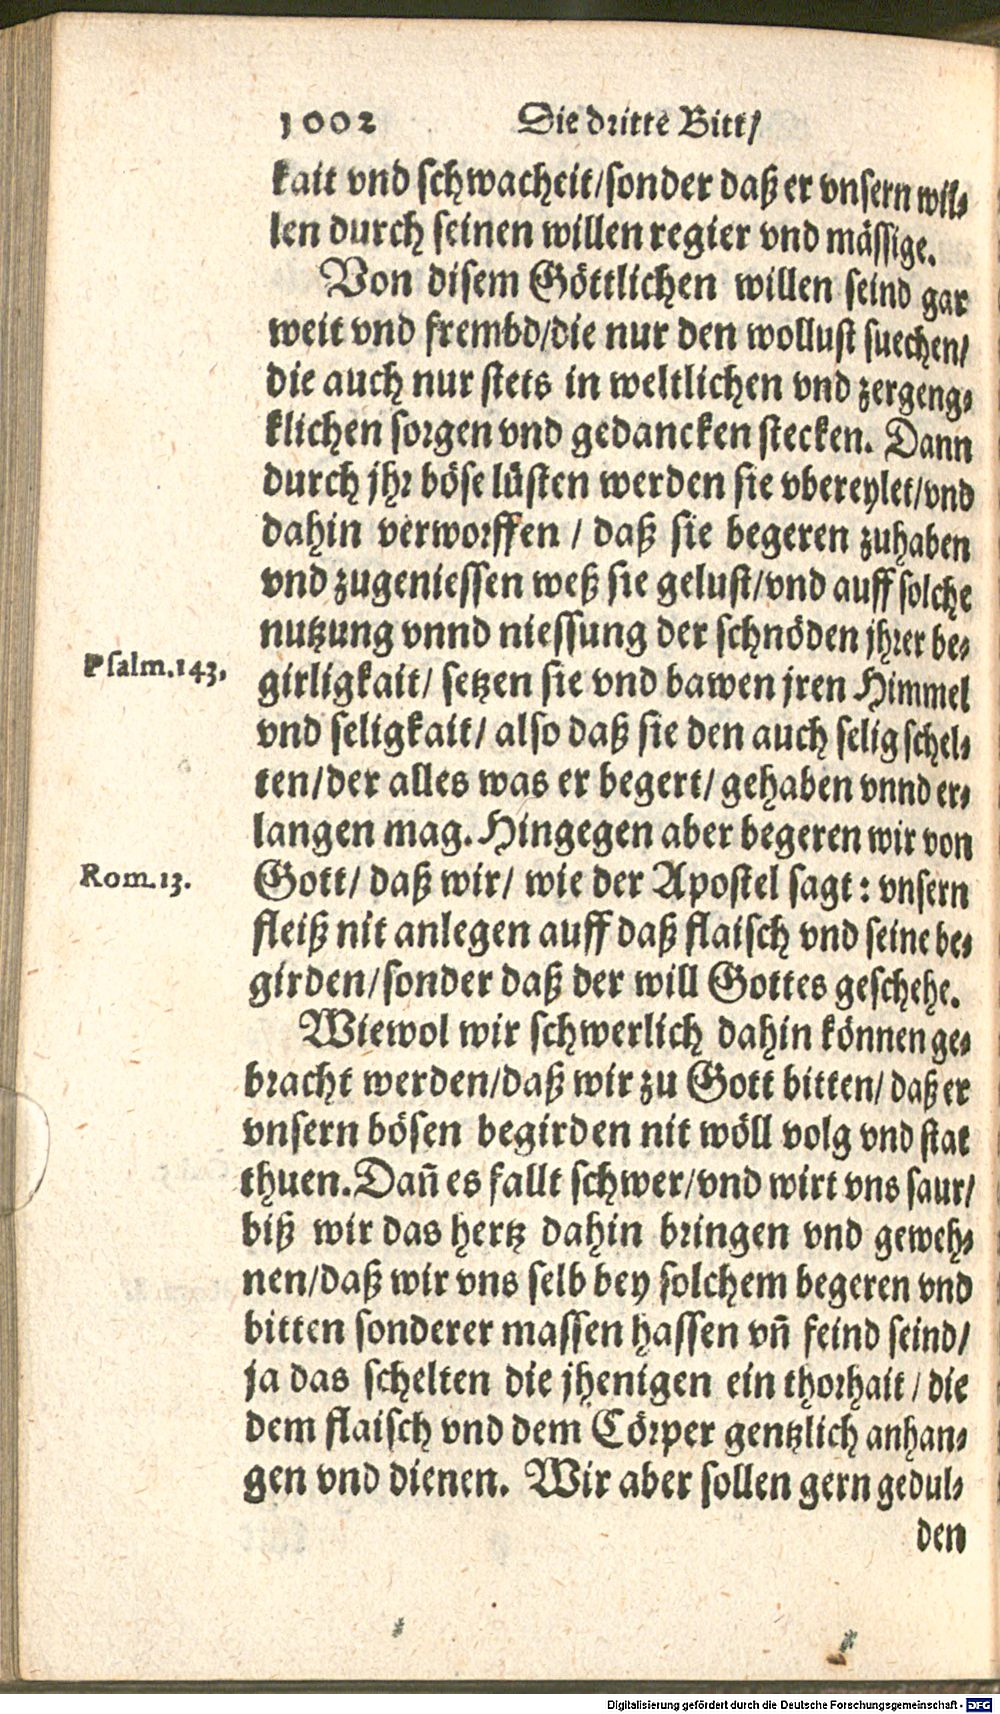 1002 Die dritte Bitt/
kait vnd schwacheit/sonder daß er vnsern wil-
len durch seinen willen regier vnd mässige.
Von disem Göttlichen willen seind gar
weit vnd frembd/die nur den wollust suechen/
die auch nur stets in weltlichen vnd zergeng-
klichen sorgen vnd gedancken stecken. Dann
durch jhr böse lüsten werden sie vbereylet/vnd
dahin verworffen / daß sie begeren zuhaben
vnd zugeniessen weß sie gelust/vnd auff solche
nutzung vnnd niessung der schnöden jhrer be-
Psalm.143. girligkait/ setzen sie vnd bawen jren Himmel
vnd seligkait/ also daß sie den auch selig schel-
ten/der alles was er begert/ gehaben vnnd er-
langen mag. Hingegen aber begeren wir von
Rom.13. Gott/ daß wir/ wie der Apostel sagt: vnsern
fleiß nit anlegen auff daß flaisch vnd seine be-
girden/sonder daß der will Gottes geschehe.
Wiewol wir schwerlich dahin können ge-
bracht werden/daß wir zu Gott bitten/ daß er
vnsern bösen begirden nit wöll volg vnd stat
thuen. Dañ es fallt schwer/vnd wirt vns saur/
biß wir das hertz dahin bringen vnd geweh-
nen/daß wir vns selb bey solchem begeren vnd
bitten sonderer massen hassen vñ feind seind/
ja das schelten die jhenigen ein thorhait / die
dem flaisch vnd dem Cörper gentzlich anhan-
gen vnd dienen. Wir aber sollen gern gedul-
den
Digitalisierung gefördert durch die Deutsche Forschungsgemeinschaft - DFG